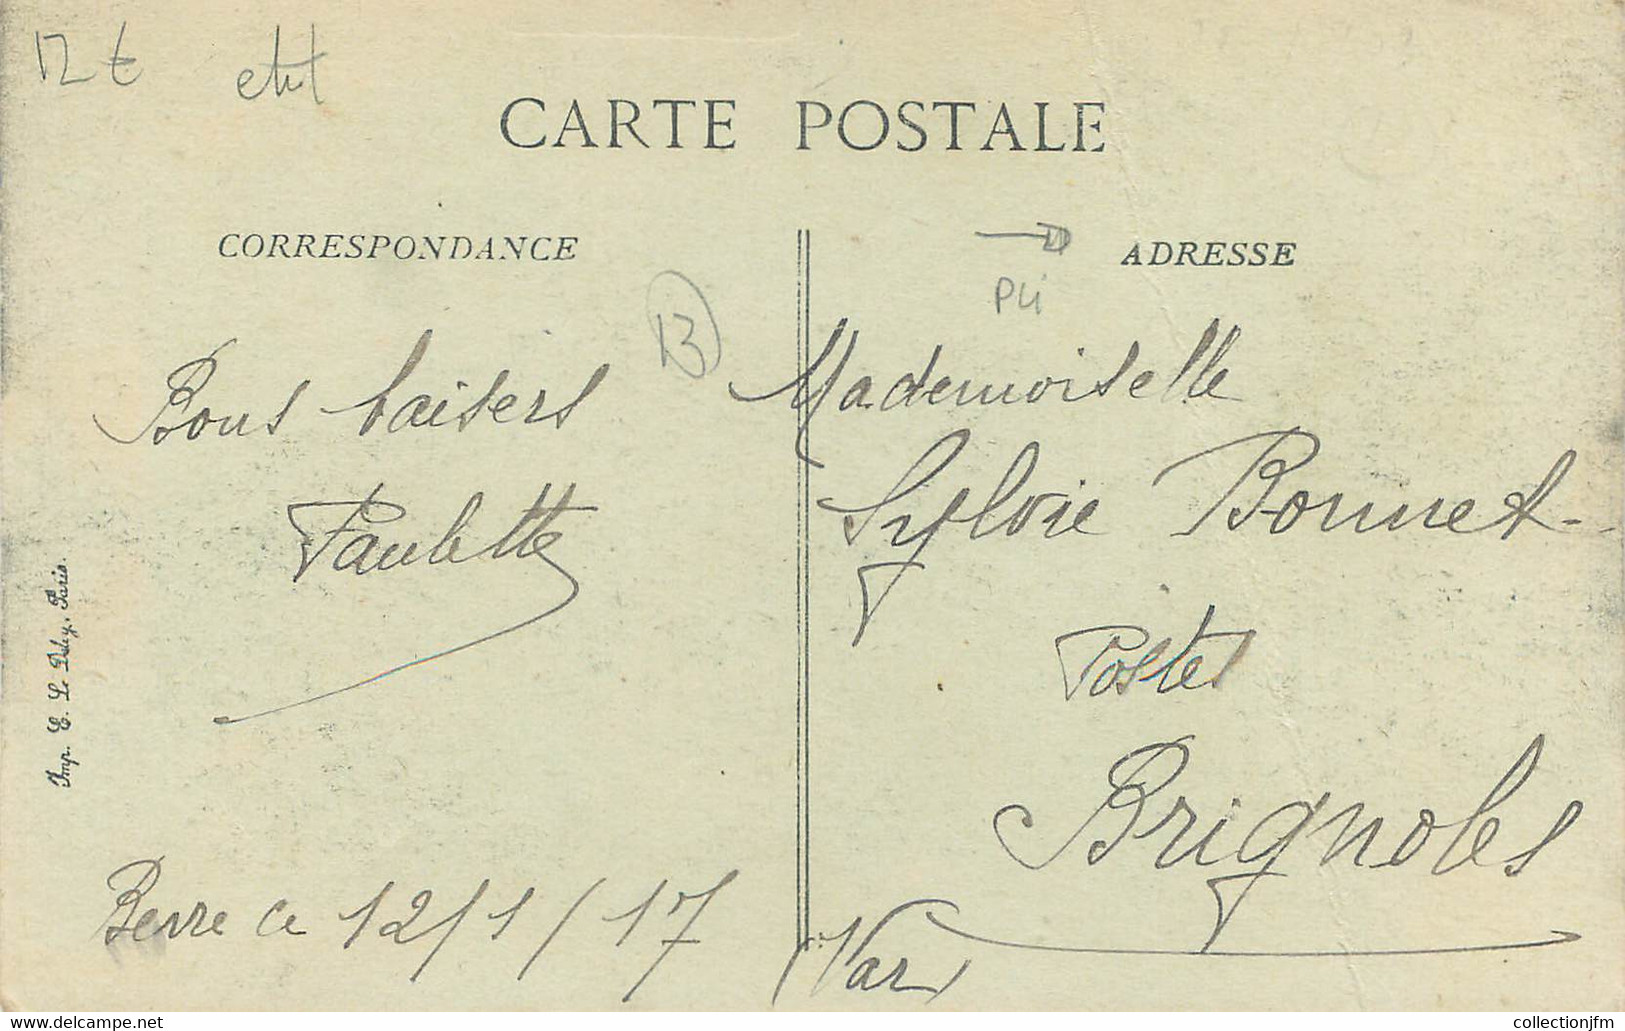 12 €
CARTE POSTALE
CORRESPONDANCE
ADRESSE
Pli
13
Bons baisers
Paulette
Berre ce 12/1/17
Mademoiselle
Sylvie Bonnet
Postes
Brignoles
(Var)
Imp. E. Le Deley, Paris.
www.delcampe.net
collectionjfm